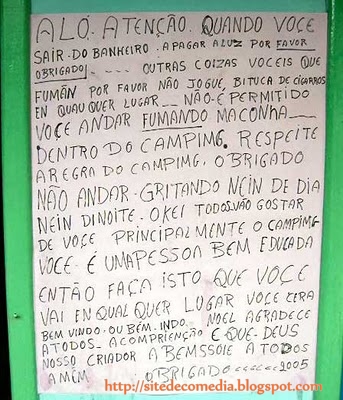 ALÓ. ATENÇÃO. QUANDO VOÇE
SAIR. DO BANHEIRO. APAGAR A LUZ POR FAVOR
OBRIGADO! .... OUTRAS COIZAS VOCEIS QUE
FUMÃN POR FAVOR NÃO JOGUE. BITUCA DE CIGARROS
EN QUAU QUER LUGAR__ NÃO É PERMITIDO
VOÇE ANDAR FUMANDO MACONHA__
DENTRO DO CAMPIMG. RESPEITE
A REGRA DO CAMPIMG. OBRIGADO
NÃO ANDAR-GRITANDO NEIN DE DIA
NEIN DINOITE. OKEI TODOS.VÃO GOSTAR
DE VOÇE PRINCIPALMENTE O CAMPIMG
VOCE. É UMA PESSOA BEM EDUCADA
ENTÃO FAÇA ISTO QUE VOCE
VAI EN QUAL QUER LUGAR VOCE CERA
BEM VINDO. OU BÉM. INDO. NOEL AGRADECE
A TODOS_ A COMPRIENÇÃO E QUE-DEUS
NOSSO CRIADOR A BEMSSOIE A TODOS
A MIM. OBRIGADO ...... 2005
http://sitedecomedia.blogspot.com